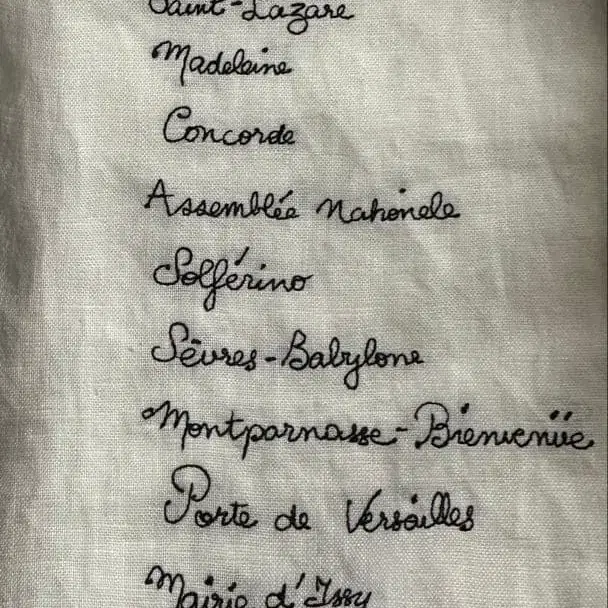 Saint-Lazare
Madeleine
Concorde
Assemblée Nationale
Solférino
Sèvres-Babylone
Montparnasse-Bienvenüe
Porte de Versailles
Mairie d'Issy